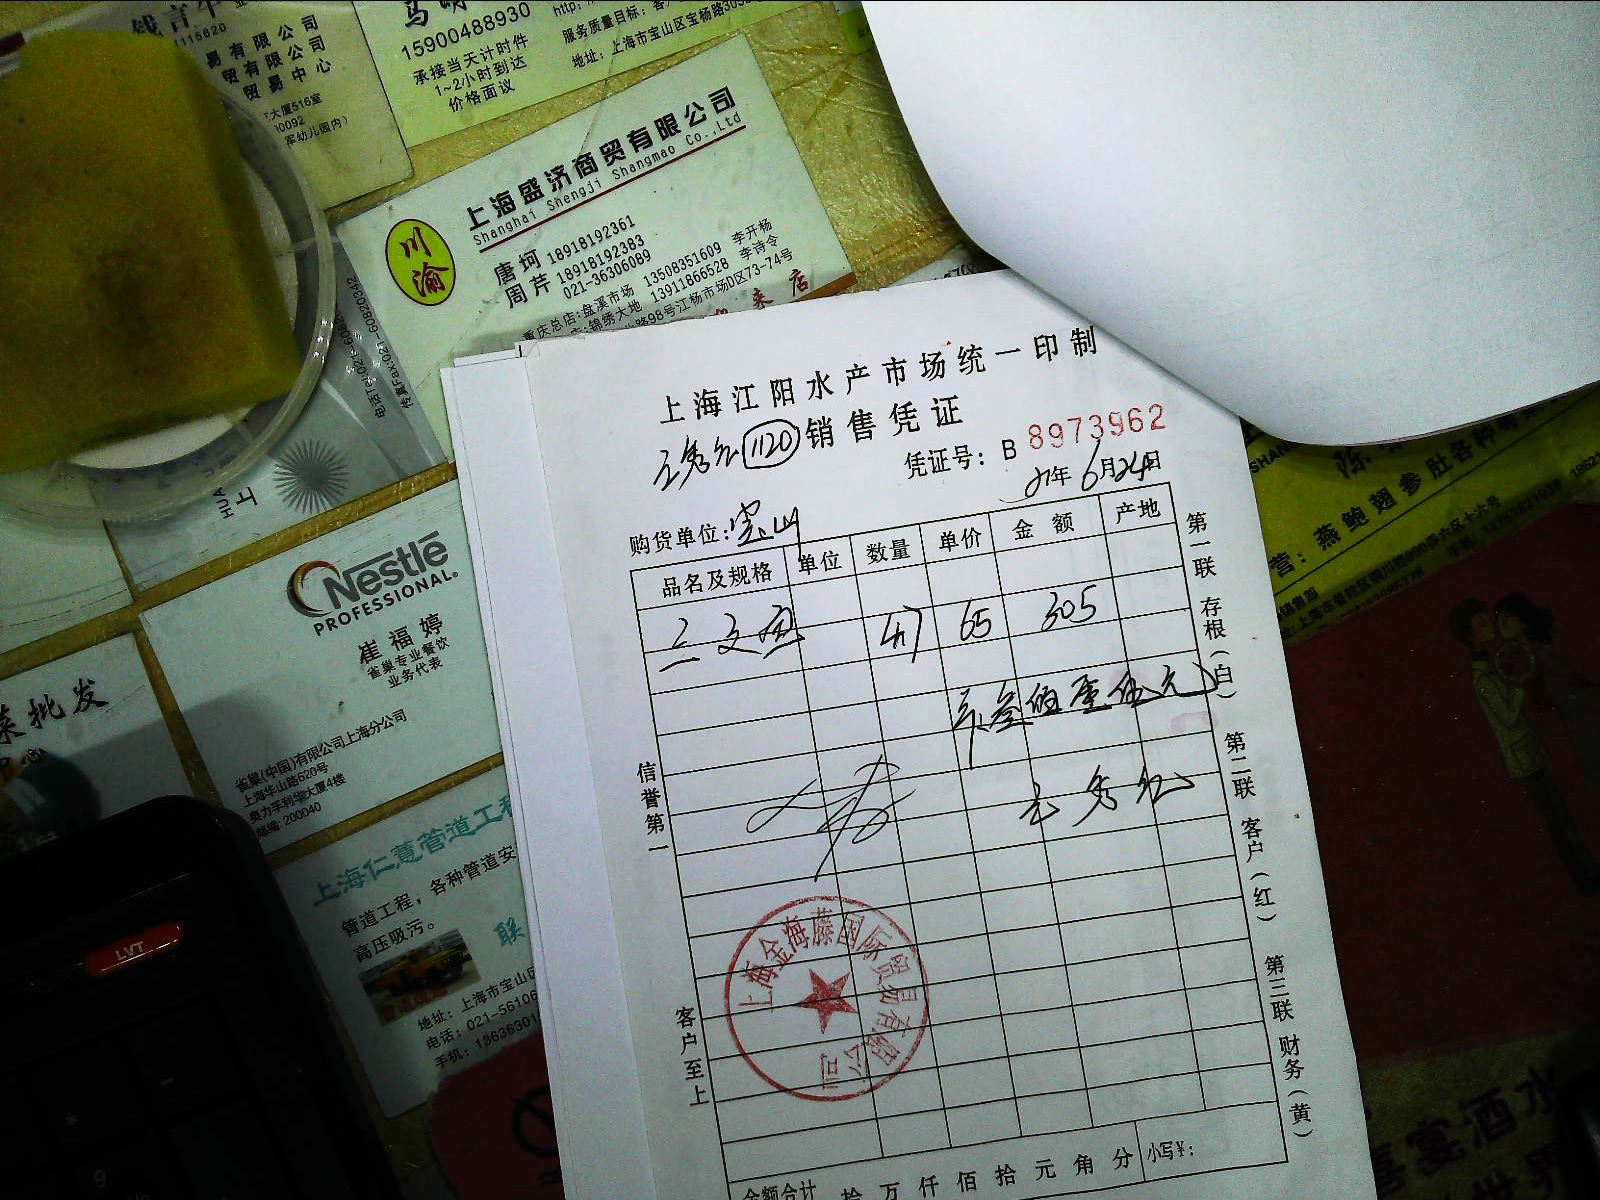 1115620
易有限公司
贸有限公司
贸易中心
大厦516室
军幼儿园内）
15900488930
承接当天计时件
1~2小时到达
价格面议
地址：上海市宝山区宝杨路
上海盛济商贸有限公司
Shanghai Shengji Shangmao Co.,Ltd
川渝
唐珂 18918192361
周芹 18918192383
021-36306089
重庆总店:盘溪市场 13508351609 李开杨
锦绣大地 13911866528 李诗令
路98号江杨市场D区73-74号
来店
上海江阳水产市场统一印制
王秀红 1120 销售凭证
凭证号：B 8973962
21年6月24日
购货单位：宝山
品名及规格 单位 数量 单价 金额 产地
三文鱼 4.7 65 305
叁佰零伍元
王秀红
信誉第一
客户至上
上海金海藤国际贸易有限公司
第一联 存根（白） 第二联 客户（红） 第三联 财务（黄）
金额合计 拾万仟佰拾元角分 小写¥：
Nestlé
PROFESSIONAL.
崔福婷
雀巢专业餐饮
业务代表
雀巢(中国)有限公司上海分公司
上海华山路620号
奥力孚利华大厦4楼
邮编:200040
菜批发
上海仁薏管道工程
管道工程，各种管道安
高压吸污。
联
地址：上海市宝山区
电话：021-5610
手机：1363630
LVT
营：燕鲍翅参肚各种
喜宴酒水